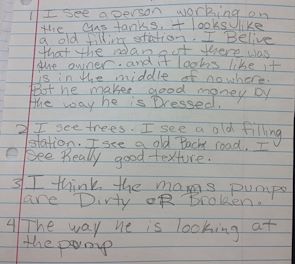 1 I see a person working on
the Gas tanks. It looks like
a old filling station. I Belive
that the man out there was
the owner. and it looks like it
is in the middle of nowhere.
But he makes good money by
the way he is Dressed.
2 I see trees. I see a old filling
station. I see a old Back road. I
see Really good texture.
3 I think the mans pumps
are Dirty OR Broken.
4 The way he is looking at
the pump